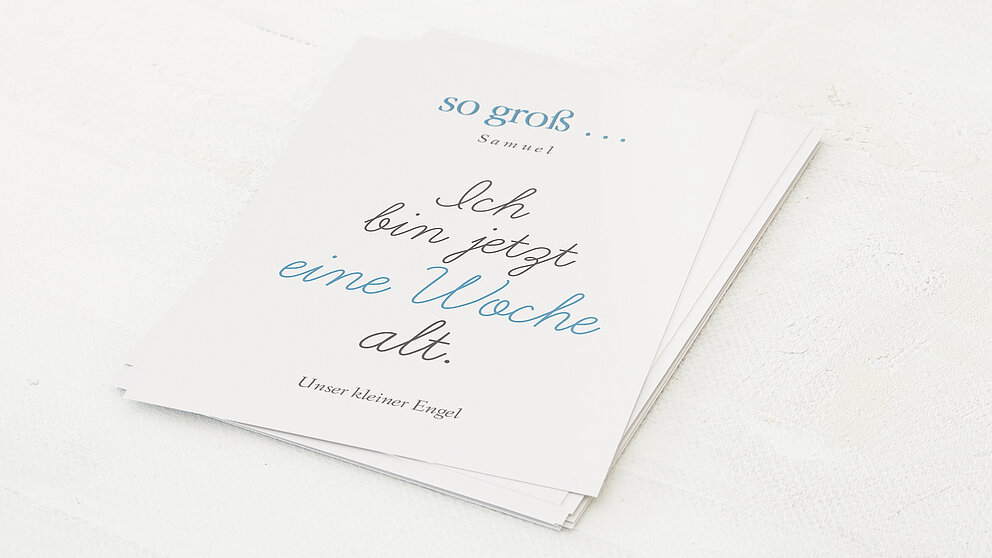 so groß ...
Samuel
Ich
bin jetzt
eine Woche
alt.
Unser kleiner Engel